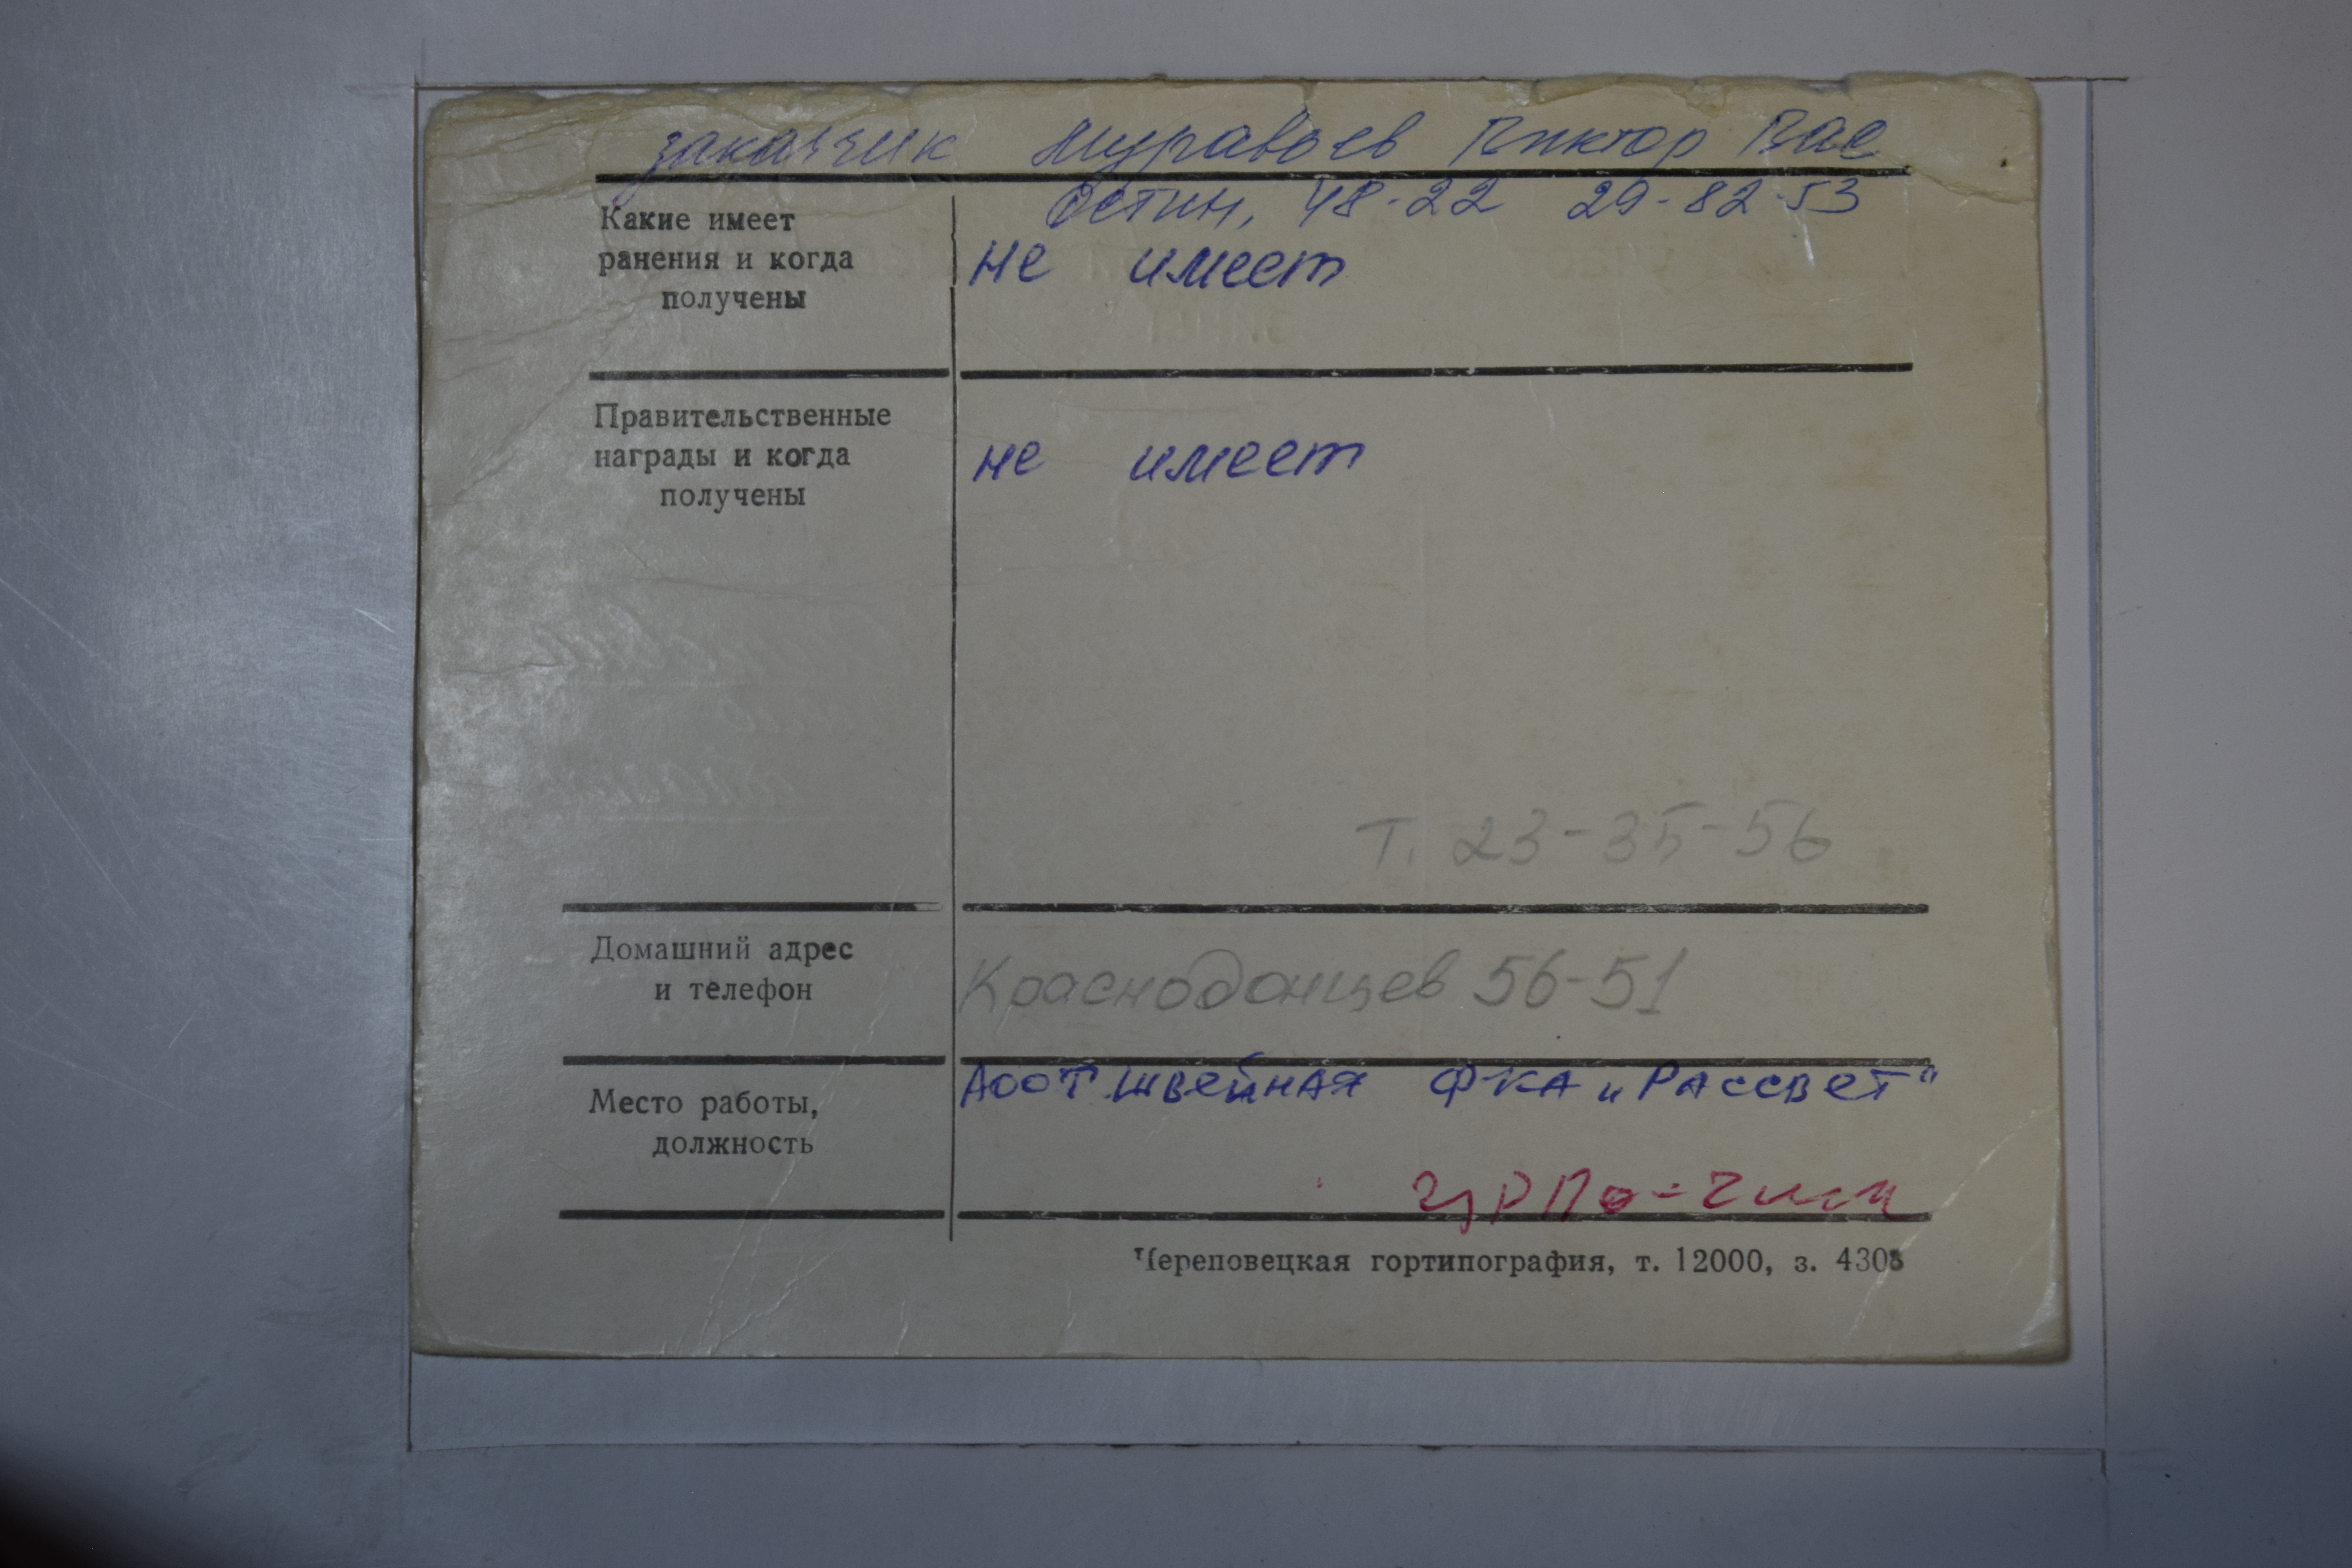 заказчик Муравьев Виктор Вас
Остин, 48-22 29-82-53
Какие имеет
ранения и когда
получены
не имеет
Правительственные
награды и когда
получены
не имеет
т. 23-35-56
Домашний адрес
и телефон
Краснодонцев 56-51
Место работы,
должность
АООТ швейная ф-ка „Рассвет"
Череповецкая гортипография, т. 12000, з. 4303